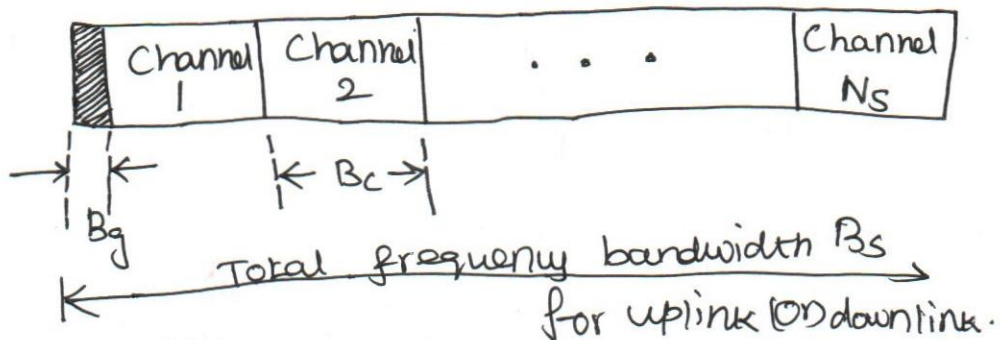 Channel
1
Channel
2
. . .
Channel
Ns
Bg
Bc
Total frequency bandwidth Bs
for uplink (OR) downlink.